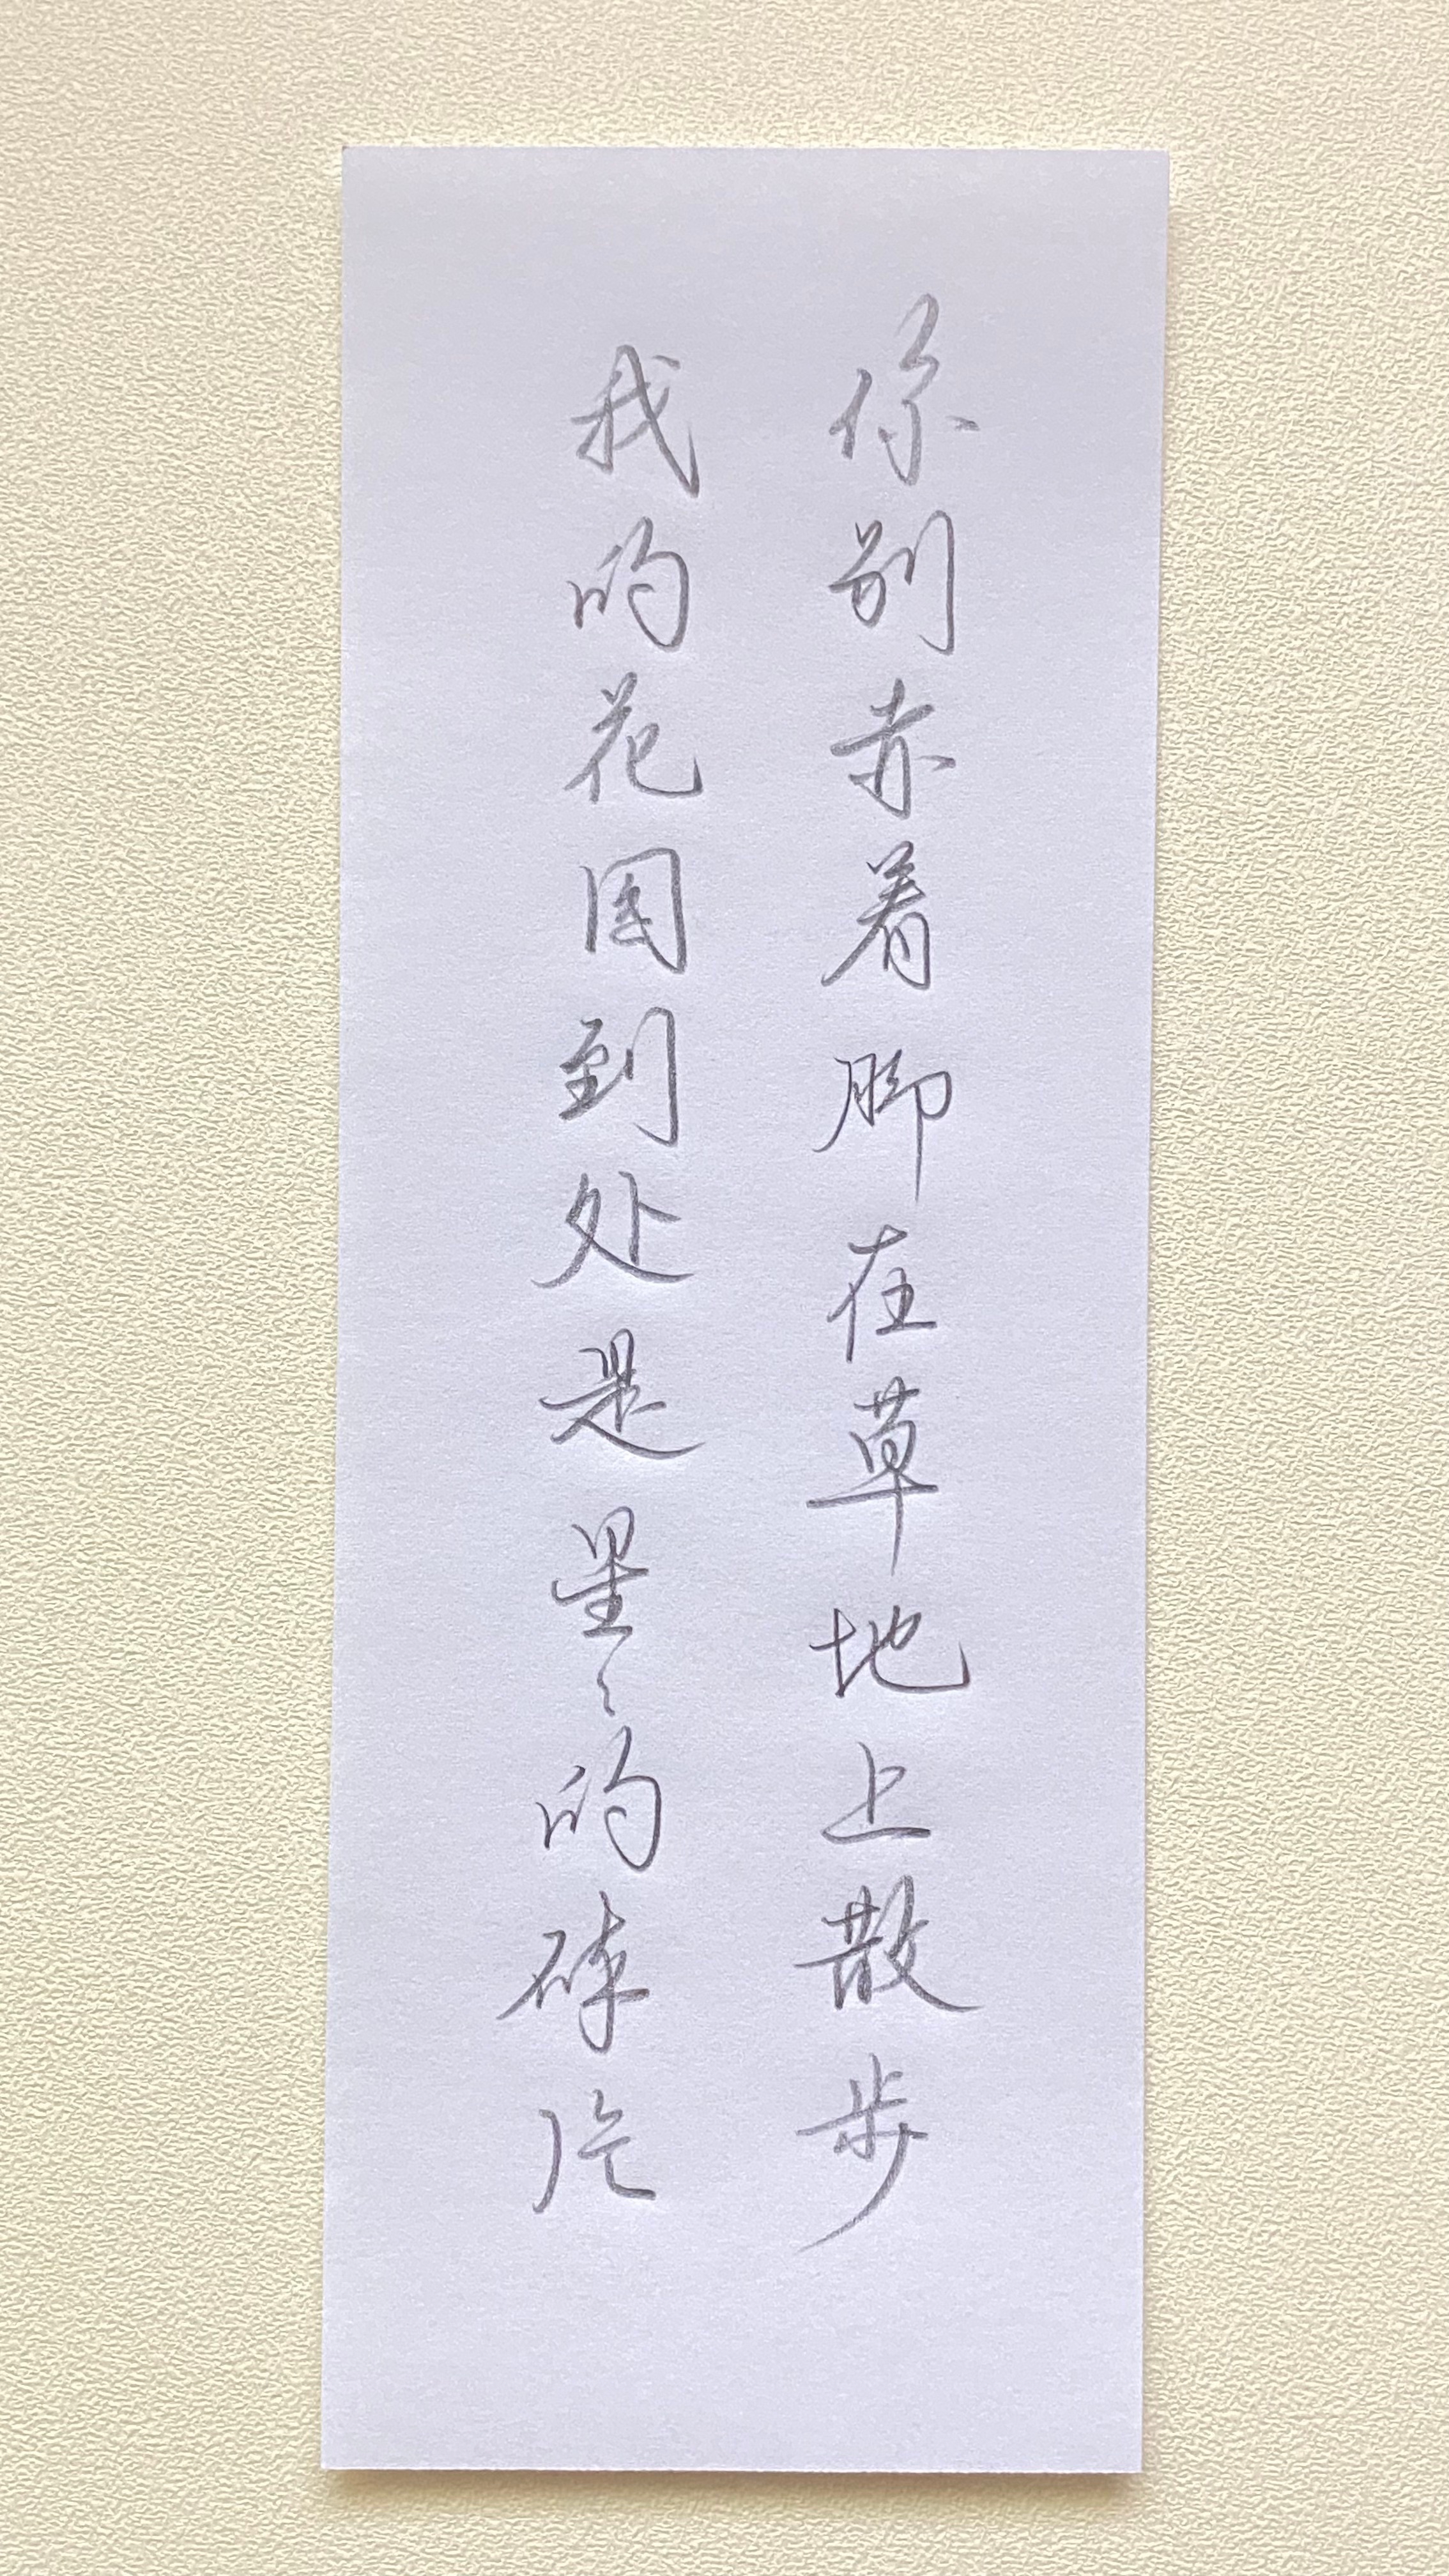 你别赤着脚在草地上散步
我的花园到处是星々的碎片